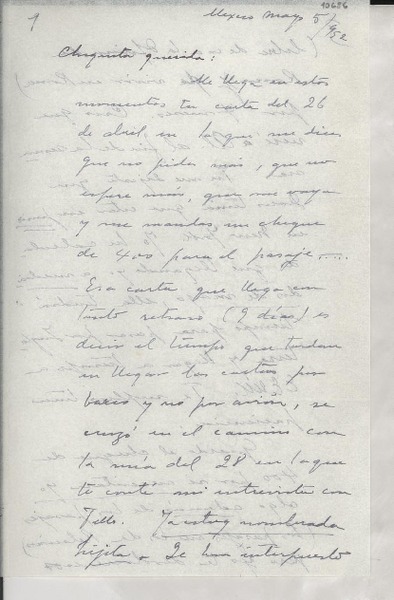 10686
1
Mexico mayo 5/952
Chiquita querida:
Me llega en estos
momentos tu carta del 26
de abril en la que me dices
que no pides más, que no
espere más, que me vaya
y me mandas un cheque
de 400 para el pasaje.....
Esa carta que llega con
tánto retraso (9 días) es
decir el tiempo que tardan
en llegar las cartas por
barco y no por avión, se
cruzó en el camino con
la mía del 28 en la que
te conté mi entrevista con
Tello. Ya estoy nombrada
hijita. Se han interpuesto